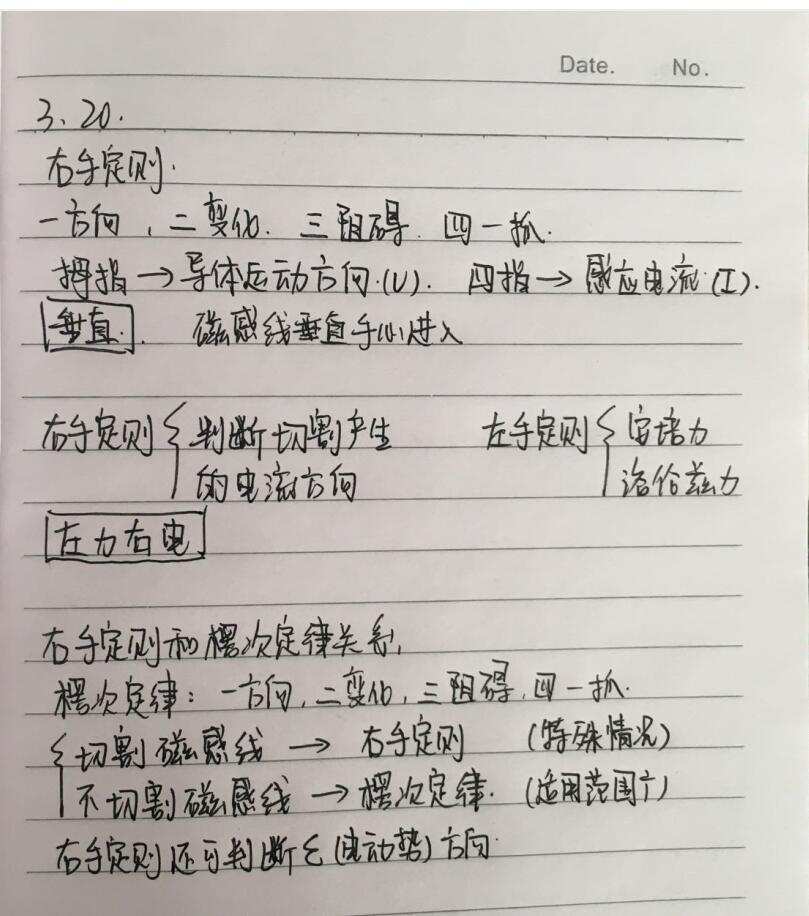 Date. No.
3.20.
右手定则.
一方向，二变化. 三阻碍. 四一抓.
拇指→导体运动方向.(V). 四指→感应电流.(I).
垂直. 磁感线垂直手心进入
右手定则{判断切割产生 左手定则{安培力
的电流方向 洛伦兹力
左力右电
右手定则和楞次定律关系,
楞次定律：一方向,二变化,三阻碍,四一抓.
{切割磁感线→右手定则 (特殊情况)
不切割磁感线→楞次定律. (适用范围广)
右手定则还可判断ε(电动势)方向.